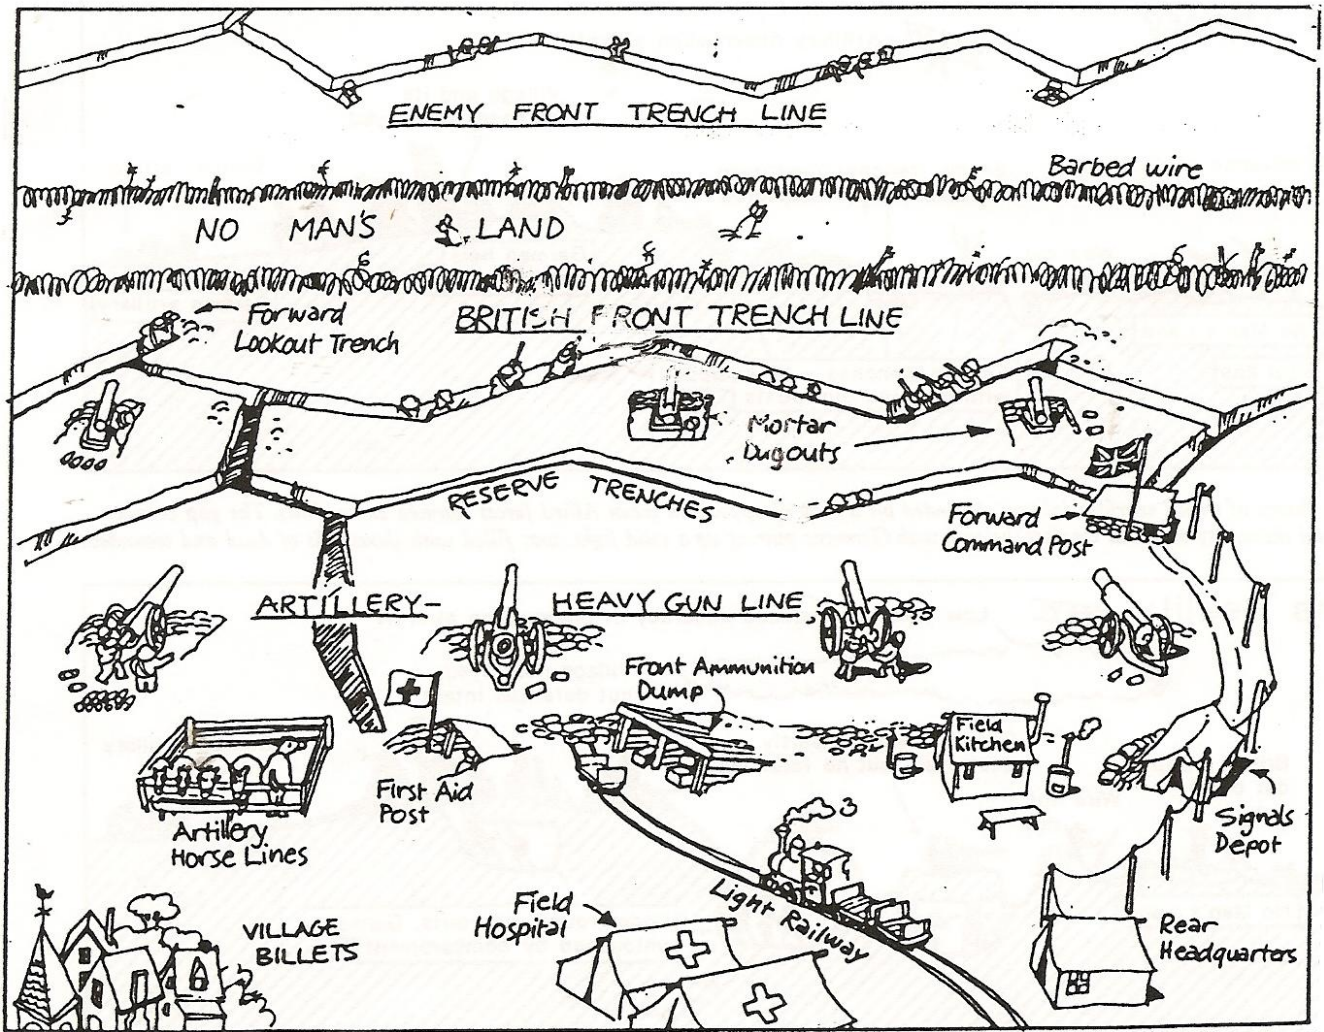 ENEMY FRONT TRENCH LINE
Barbed wire
NO MAN'S LAND
Forward
Lookout Trench
BRITISH FRONT TRENCH LINE
Mortar
Dugouts
RESERVE TRENCHES
Forward
Command Post
ARTILLERY- HEAVY GUN LINE
Front Ammunition
Dump
Field
Kitchen
First Aid
Post
Artillery
Horse Lines
Signals
Depot
Light Railway
Field
Hospital
VILLAGE
BILLETS
Rear
Headquarters